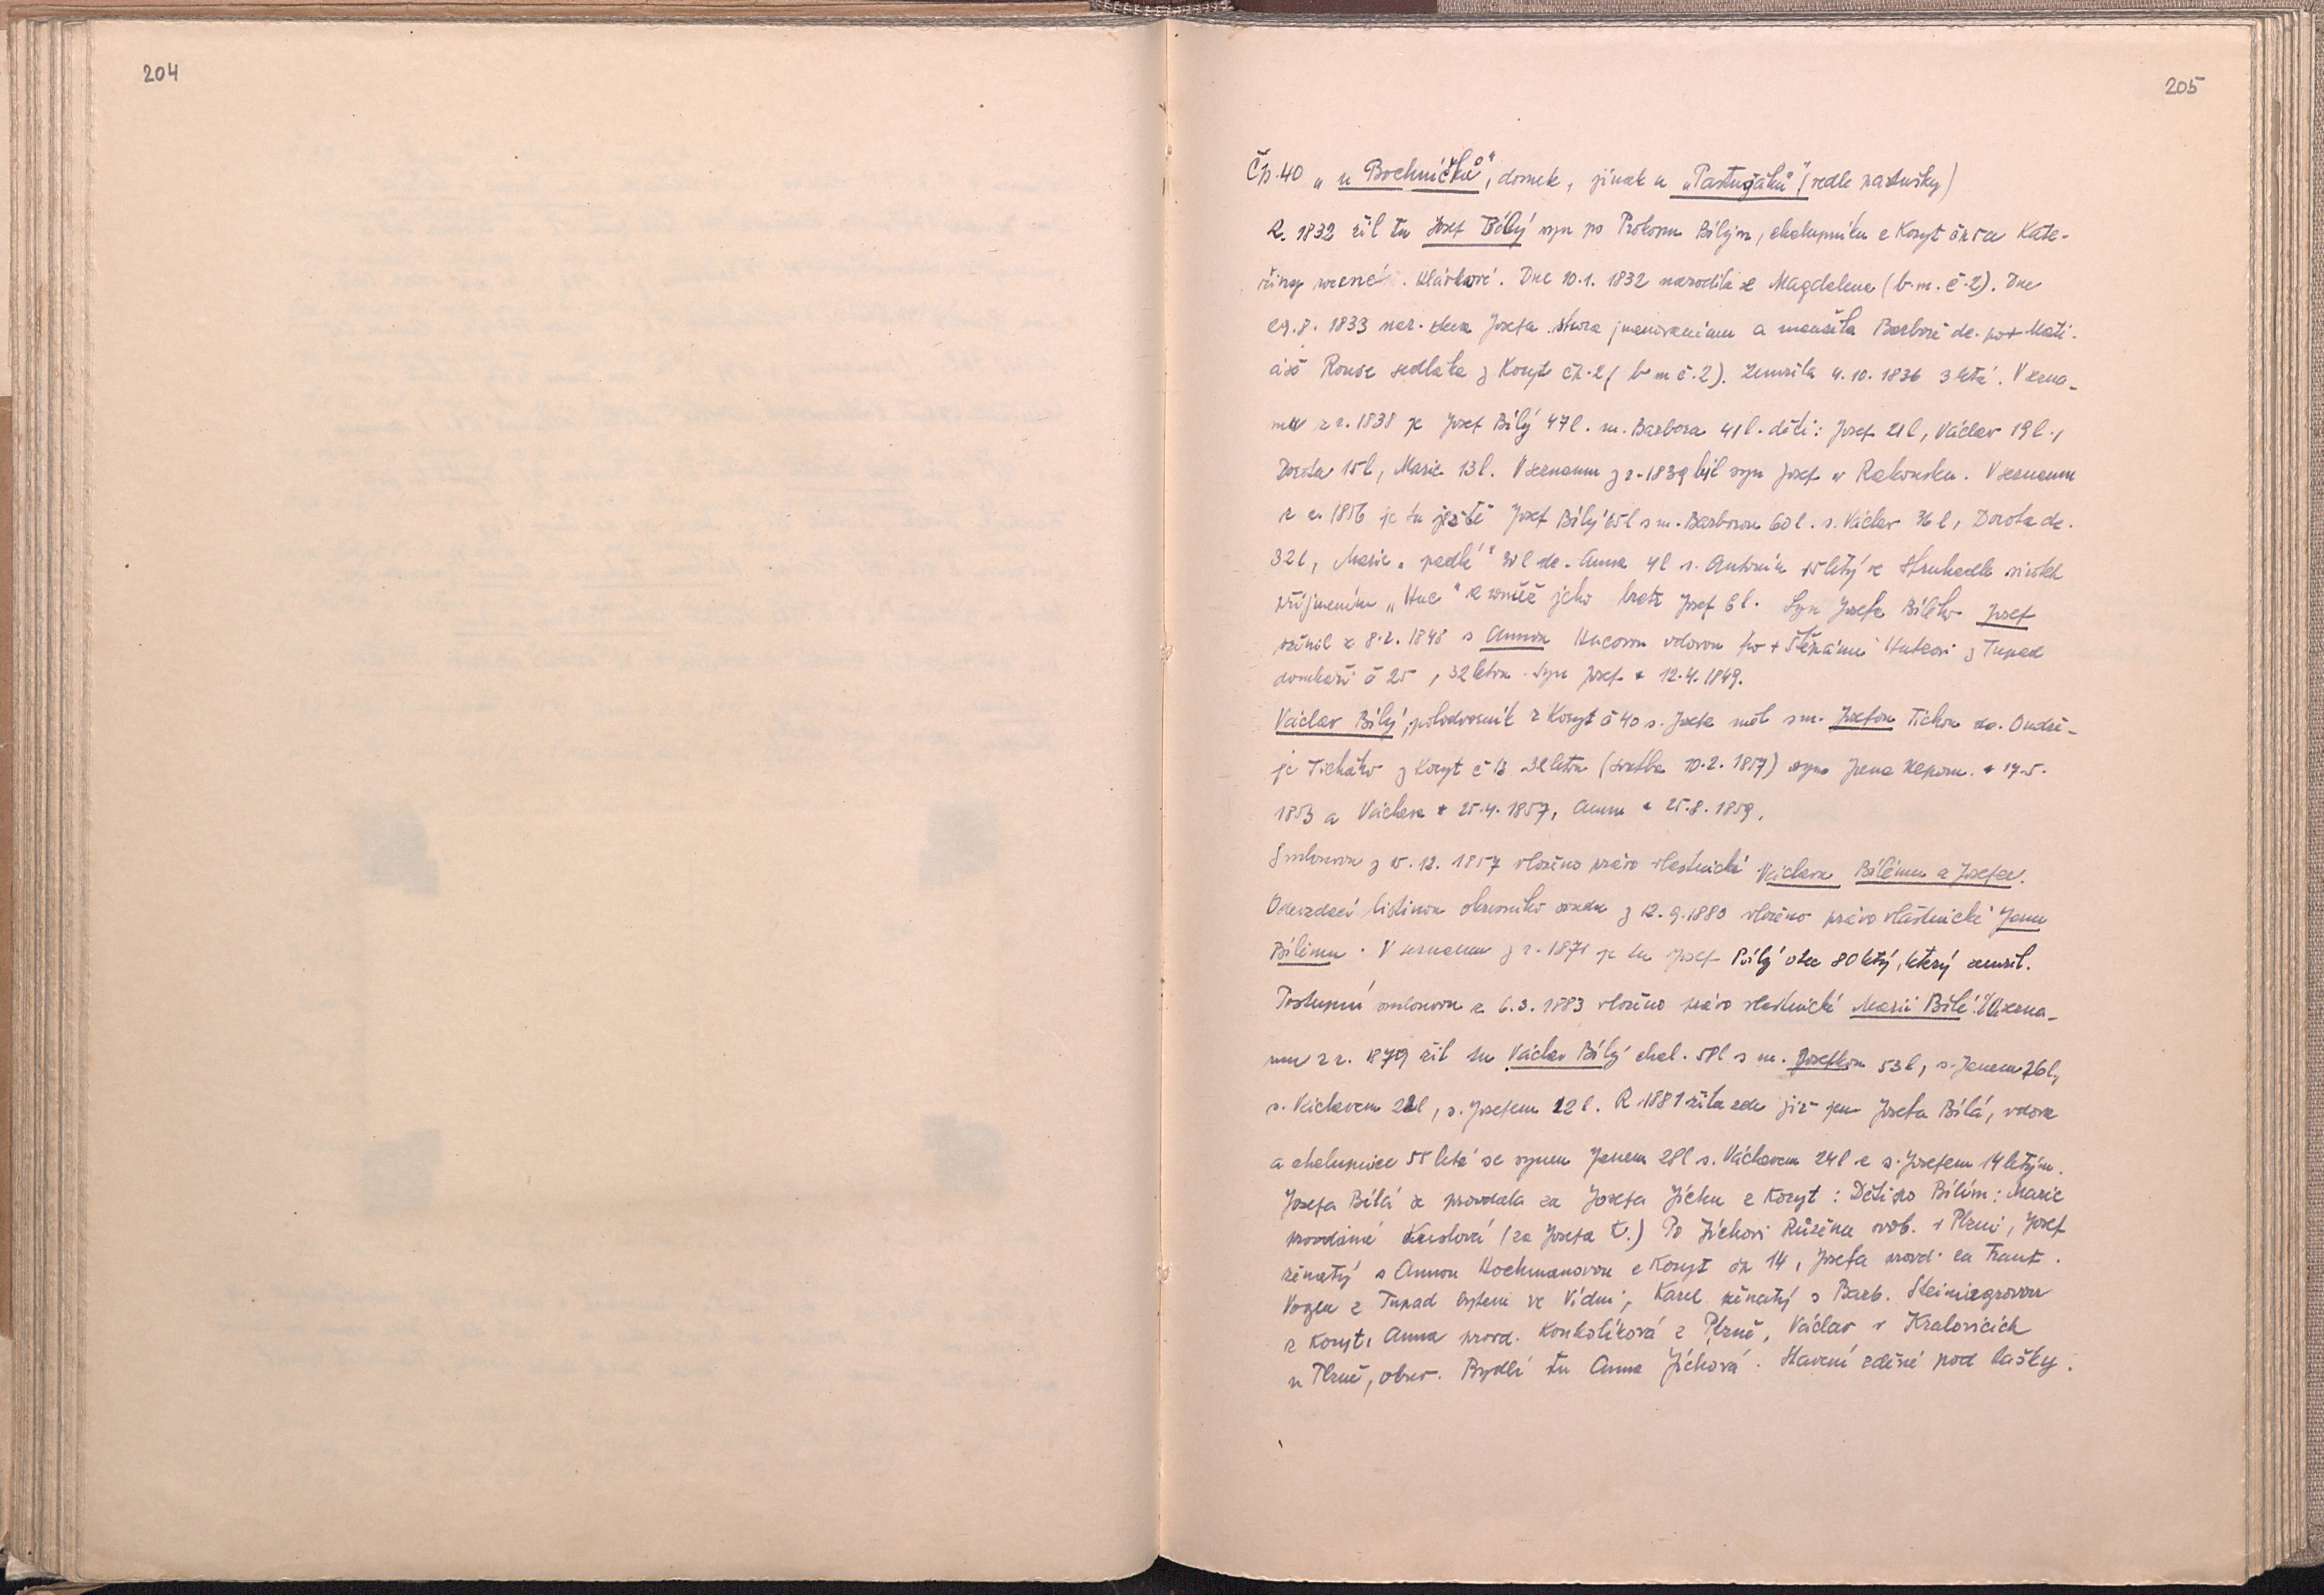 204
205
Čp. 40 „u Bochníčků", domek, jinak u „Pastušáků" (vedle pastušky)
R. 1832 žil tu Josef Bílý syn po Prokopu Bílým, chalupníku z Koryt a Kate-
řiny Dne 10.1. 1832 narodila se Magdalena (b. m. č. 2). Dne
29.8. 1833 nar. dcera Josefa shora jmenovanému a manželka Barboře dc. po + Mati-
áši sedláka z Koryt čp. 2 (b m č. 2). Zemřela 4. 10. 1836 3letá. V sezna-
mu z r. 1838 je Josef Bílý 47 l. m. Barbora 41 l. děti: Josef 21 l, Václav 19 l.,
Dorota 15 l, Marie 13 l. V seznamu z r. 1839 byl syn Josef v Rakousku. V seznamu
z r. 1856 je tu ještě Josef Bílý 65 l s m. Barborou 60 l. s. Václav 36 l, Dorota dc.
32 l, Marie dc. Anna 4 l s. Antonín 15letý
příjmením „Huc" a rovněž jeho bratr Josef 6 l. Syn Josefa Bílého Josef
oženil se 8.2. 1848 s Annou Hucovou vdovou po + Štěpánu z Tupad
domkáři č 25, 32letou. Syn Josef * 12.4. 1849.
Václav Bílý, z Koryt č 40 s. Josefa měl s m. Josefou Tichou dc. Ondře-
je Tichého z Koryt č 13 (svatba 10.2. 1857) syna Jana Nepom. * 17.5.
1853 a Václava * 25.4. 1857, Annu * 25.8. 1859.
Smlouvou z 15. 12. 1857 vloženo právo vlastnické Václavu Bílému a Josefě.
Odevzdací listinou okresního soudu z 12. 9. 1880 vloženo právo vlastnické Janu
Bílému. V seznamu z r. 1871 je tu Josef Bílý otec 80letý, který zemřel.
Postupní smlouvou z 6. 3. 1883 vloženo právo vlastnické Marii Bílé. V sezna-
mu z r. 1879 žil tu Václav Bílý chal. 58 l s m. Josefkou 53 l, s. Janem 26 l,
s. Václavem 22 l, s. Josefem 12 l. R. 1881 žila zde již jen Josefa Bílá, vdova
a chalupnice 55letá se synem Janem 28 l s. Václavem 24 l a s. Josefem 14letým.
Josefa Bílá se provdala za Josefa Jícha z Koryt: Děti po Bílým: Marie
provdaná (za Josefa ) Po Jíchovi Růžena svob. v Plzni, Josef
ženatý s Annou Hochmanovou z Koryt čp 14, Josefa provd. za Frant.
Vogla z Tupad bytem ve Vídni, Karel ženatý s Barb.
z Koryt, Anna provd. Konkolíková z Plzně, Václav v Kralovicích
u Plzně, obuv. Bydlí tu Anna Jíchová. Stavení zděné pod tašky.